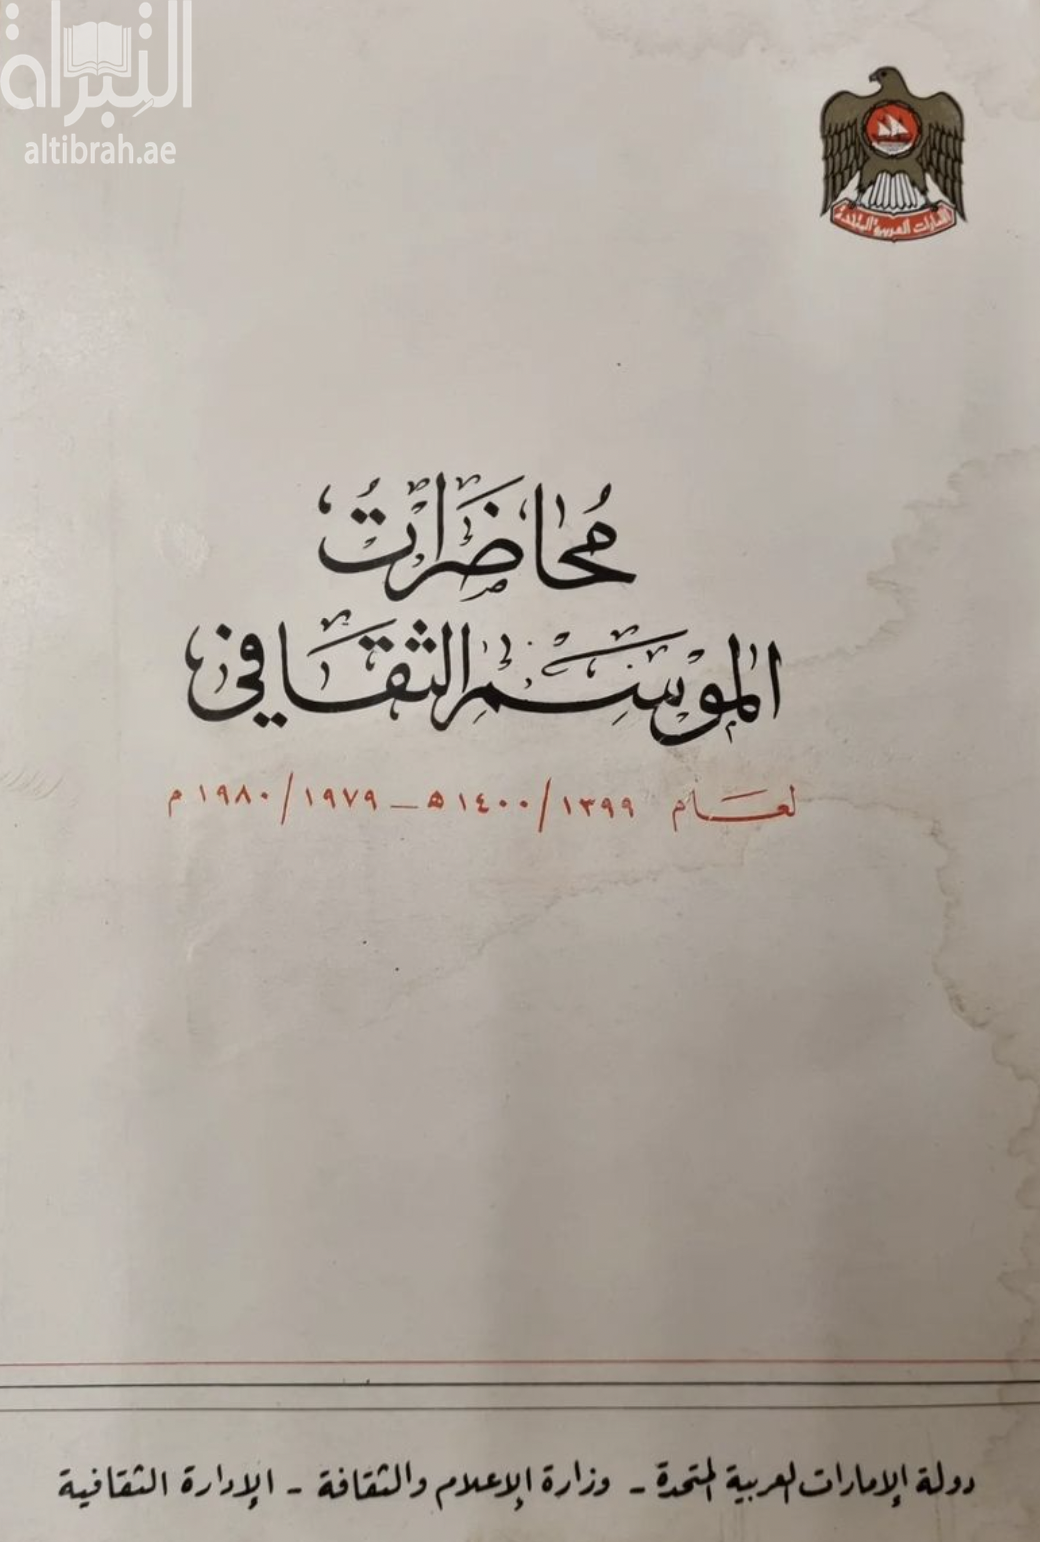 التبراة
altibrah.ae
الامارات العربية المتحدة
مُحَاضَرَاتُ
الموسم الثقافي
لعام ١٣٩٩/١٤٠٠ هـ – ١٩٧٩/١٩٨٠ م
دولة الإمارات العربية المتحدة - وزارة الإعلام والثقافة - الإدارة الثقافية